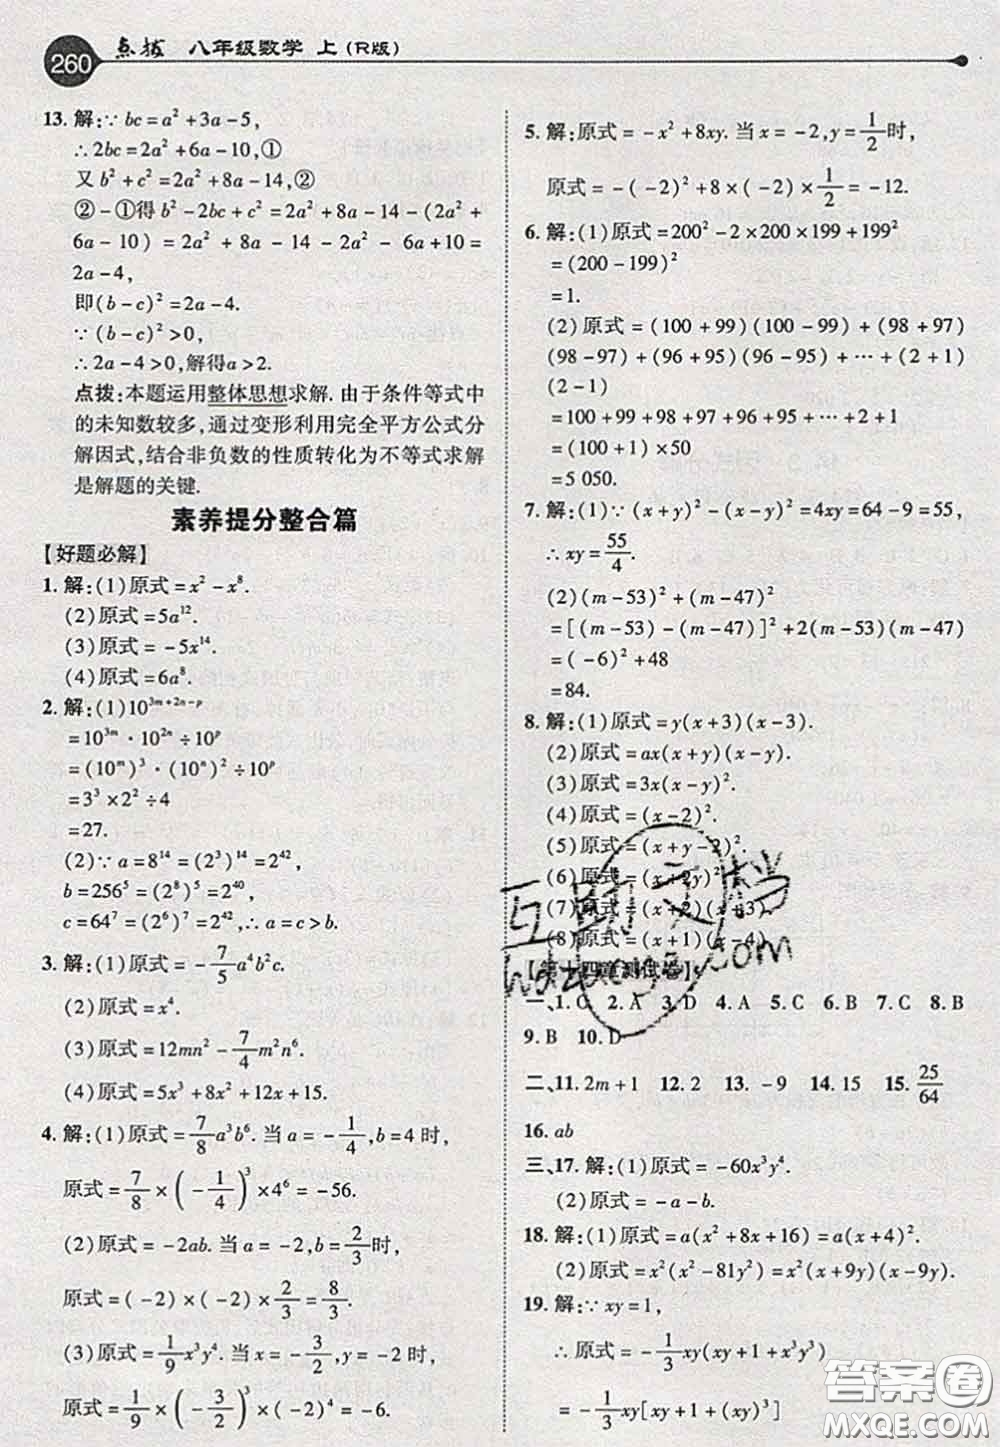 260 点拨 八年级数学 上(R版)
13. 解:∵bc=a²+3a-5,
∴2bc=2a²+6a-10,①
又b²+c²=2a²+8a-14,②
②-①得b²-2bc+c²=2a²+8a-14-(2a²+
6a-10)=2a²+8a-14-2a²-6a+10=
2a-4,
即(b-c)²=2a-4.
∵(b-c)²>0,
∴2a-4>0,解得a>2.
点拨:本题运用整体思想求解. 由于条件等式中
的未知数较多,通过变形利用完全平方公式分
解因式,结合非负数的性质转化为不等式求解
是解题的关键.
素养提分整合篇
【好题必解】
1. 解:(1)原式=x²-x⁸.
(2)原式=5a¹².
(3)原式=-5x¹⁴.
(4)原式=6a⁸.
2. 解:(1)10^(3m+2n-p)
=10^(3m)·10^(2n)÷10^p
=(10^m)³·(10^n)²÷10^p
=3³×2²÷4
=27.
(2)∵a=8¹⁴=(2³)¹⁴=2⁴²,
b=256⁵=(2⁸)⁵=2⁴⁰,
c=64⁷=(2⁶)⁷=2⁴²,∴a=c>b.
3. 解:(1)原式=-7/5 a⁴b²c.
(2)原式=x⁴.
(3)原式=12mn²-7/4 m²n⁶.
(4)原式=5x³+8x²+12x+15.
4. 解:(1)原式=7/8 a³b⁶. 当a=-1/4,b=4时,
原式=7/8×(-1/4)³×4⁶=-56.
(2)原式=-2ab. 当a=-2,b=2/3时,
原式=(-2)×(-2)×2/3=8/3.
(3)原式=1/9 x³y⁴. 当x=-3/2,y=-2时,
原式=1/9×(-3/2)³×(-2)⁴=-6.
5. 解:原式=-x²+8xy. 当x=-2,y=1/2时,
原式=-(-2)²+8×(-2)×1/2=-12.
6. 解:(1)原式=200²-2×200×199+199²
=(200-199)²
=1.
(2)原式=(100+99)(100-99)+(98+97)
(98-97)+(96+95)(96-95)+…+(2+1)
(2-1)
=100+99+98+97+96+95+…+2+1
=(100+1)×50
=5 050.
7. 解:(1)∵(x+y)²-(x-y)²=4xy=64-9=55,
∴xy=55/4.
(2)(m-53)²+(m-47)²
=[(m-53)-(m-47)]²+2(m-53)(m-47)
=(-6)²+48
=84.
8. 解:(1)原式=y(x+3)(x-3).
(2)原式=ax(x+y)(x-y).
(3)原式=3x(x-y)².
(4)原式=(x-2)².
(5)原式=(x+y-2)².
(6)原式=(x+2y)².
(7)原式=(x+2)(x+3).
(8)原式=(x+1)(x-4).
【第十四章测试卷】
一、1. C 2. A 3. D 4. A 5. C 6. B 7. C 8. B
9. B 10. D
二、11. 2m+1 12. 2 13. -9 14. 15 15. 25/64
16. ab
三、17. 解:(1)原式=-60x³y⁴.
(2)原式=-a-b.
18. 解:(1)原式=a(x²+8x+16)=a(x+4)².
(2)原式=x²(x²-81y²)=x²(x+9y)(x-9y).
19. 解:∵xy=1,
∴原式=-1/3 xy(xy+1+x³y³)
=-1/3 xy[xy+1+(xy)³]
互助文档
hdzuoye.com
答案圈
MXQE.COM